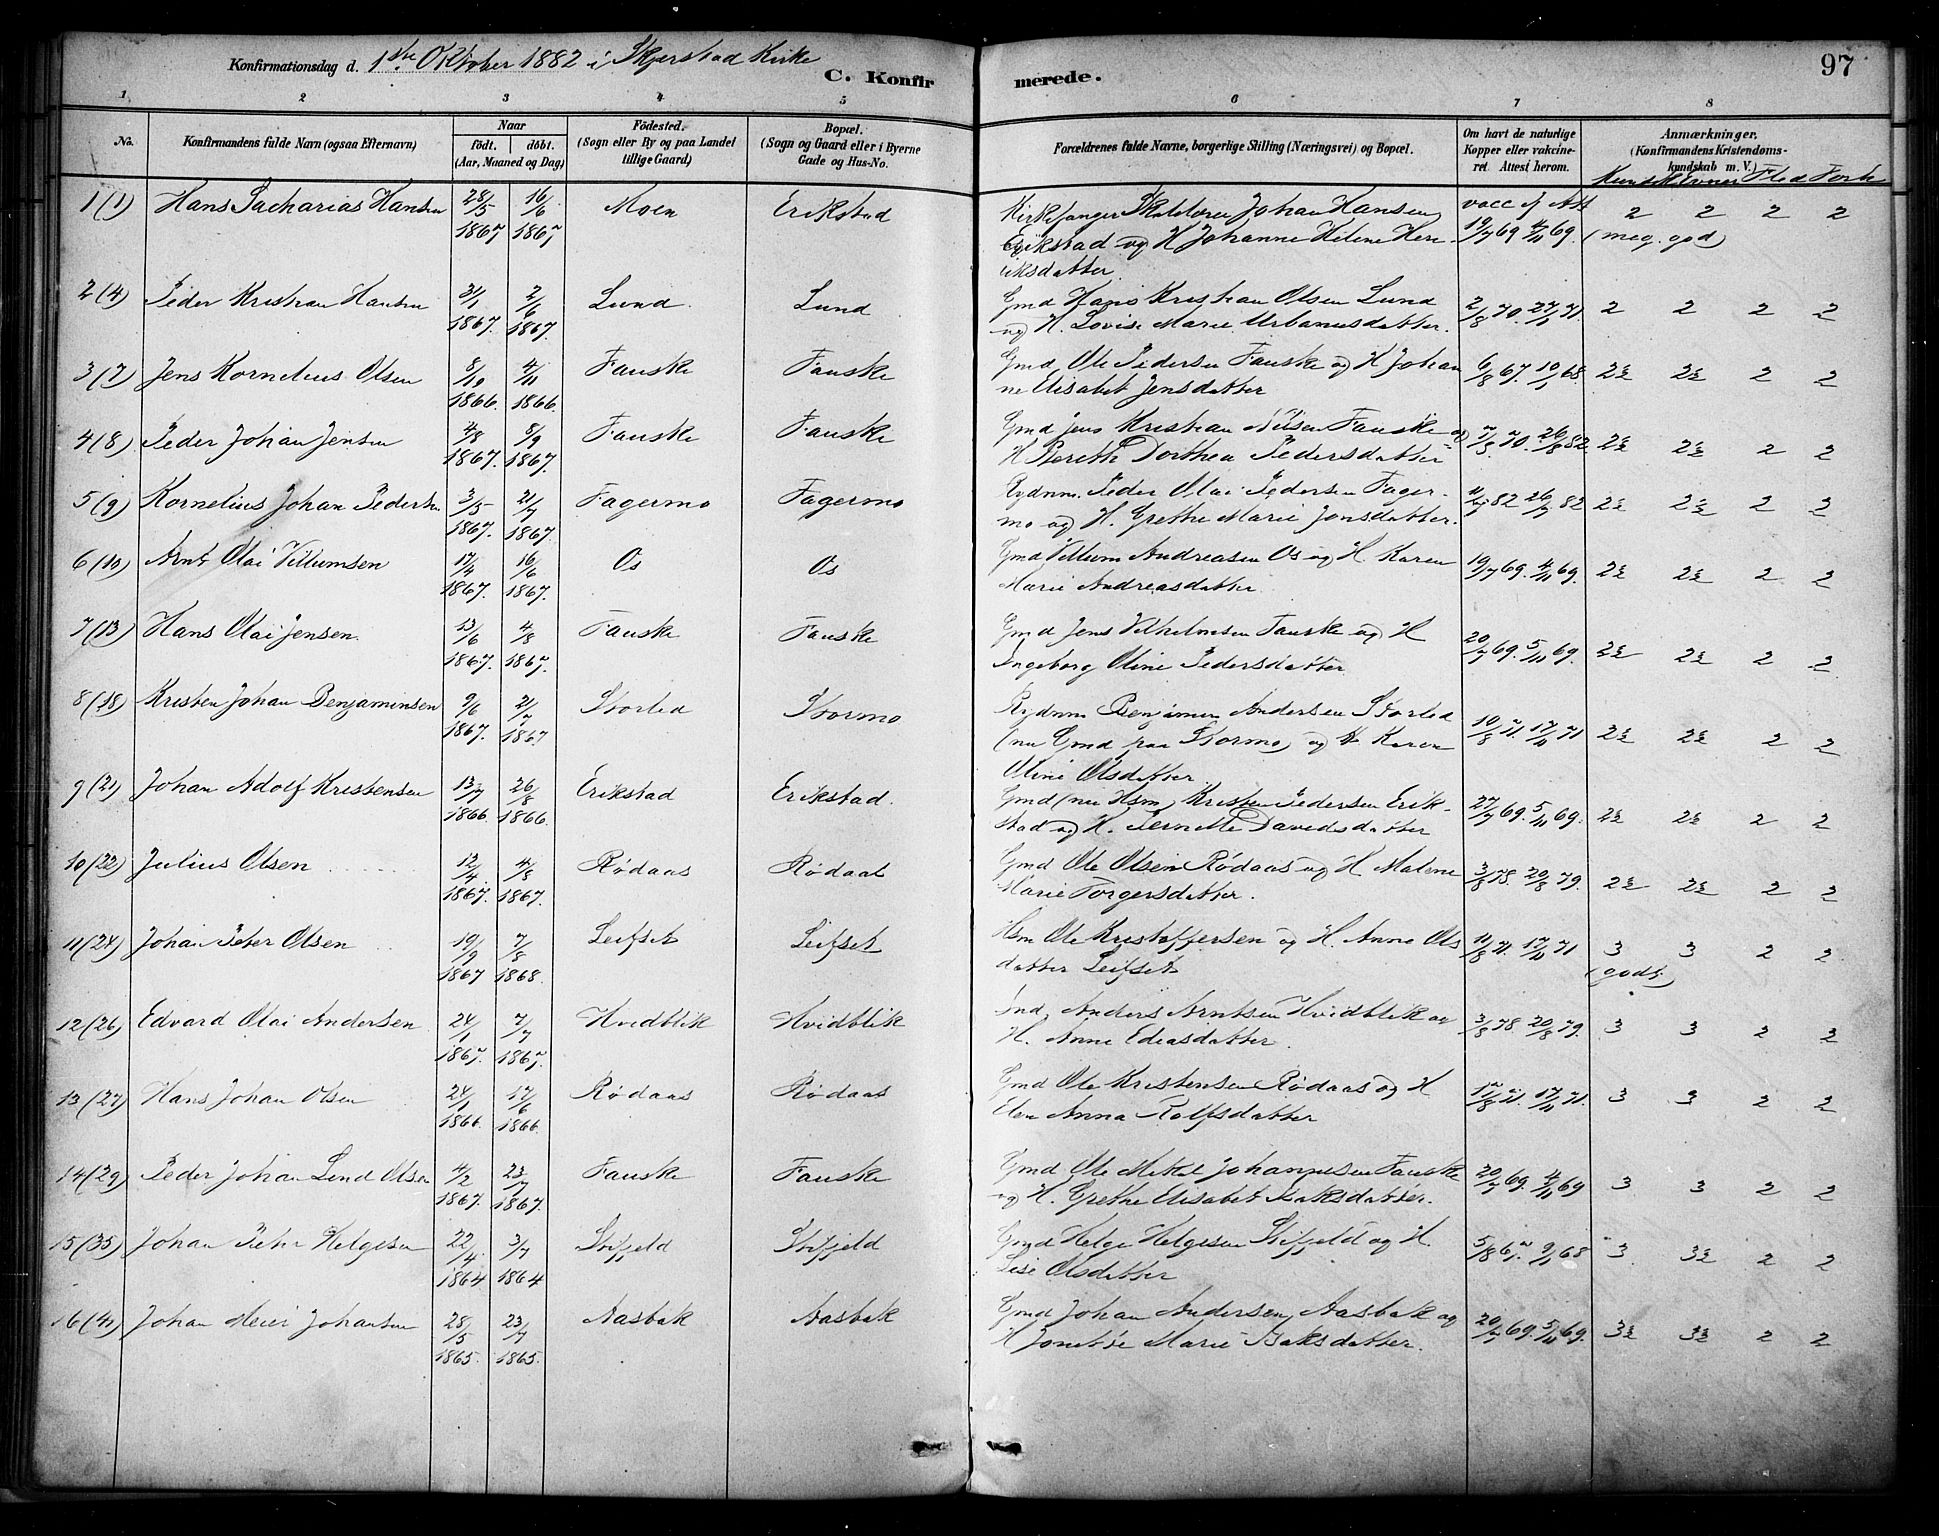 Konfirmationsdag d. 1ste Oktober 1882 i Skjerstad Kirke
C. Konfirmerede.
97
1 2 3 4 5 6 7 8
No.
Konfirmandens fulde Navn (ogsaa Efternavn)
Naar
födt. döbt.
(Aar, Maaned og Dag)
Födested.
(Sogn eller By og paa Landet
tillige Gaard)
Bopæl.
(Sogn og Gaard eller i Byerne
Gade og Hus-No.
Forældrenes fulde Navne, borgerlige Stilling (Næringsvei) og Bopæl.
Om havt de naturlige
Kopper eller vakcine-
ret Attest herom.
Anmærkninger,
(Konfirmandens Kristendoms-
kundskab m. V.)
Kundsk Evner Flid Forh
1 (1) Hans Zacharias Hansen 28/5 1867 16/6 1867 Moen Erikstad
Kirkesanger Skolelærer Johan Hansen
Erikstad og H Johanne Helene Hen-
riksdatter
vacc if Att
19/7 69 4/11 69. 2 2 2 2
(meg. god)
2 (4) Peder Kristian Hansen 31/1 1867. 2/6 1867. Lund Lund
Gmd Hans Kristian Olsen Lund
og H. Lovise Marie Urbanusdatter.
2/8 70. 27/1 71. 2 2 2 2
3 (7) Jens Kornelius Olsen 8/10 1866. 4/11 1866. Fauske Fauske
Gmd Ole Pedersen Fauske og H Johan
ne Elisabet Jensdatter
6/8 67. 10/1 68 2½ 2½ 2 2
4 (8) Peder Johan Jensen 4/8 1867. 8/9 1867. Fauske Fauske
Gmd Jens Kristian Nilsen Fauske og
H Bereth Dorthea Pedersdatter
70. 26/8 82. 2½ 2½ 2 2
5 (9) Kornelius Johan Pedersen 3/5 1867. 21/7 1867. Fagermo Fagermo
Rydnm. Peder Olai Pedersen Fager-
mo og H. Grethe Marie Jonsdatter.
82 82 2½ 2½ 2 2
6 (10) Arnt Olai Villumsen 17/4 1867. 16/6 1867. Os Os
Gmd Villum Andreasen Os og H. Karen
Marie Andreasdatter.
19/7 69. 4/11 69. 2½ 2½ 2 2
7 (13) Hans Olai Jensen 13/6 1867. 4/8 1867. Fauske Fauske
Gmd Jens Vilhelmsen Fauske og H
Ingeborg Oline Pedersdatter
20/7 69. 5/11 69. 2½ 2½ 2 2
8 (18) Kristen Johan Benjaminsen 9/6 1867. 21/7 1867 Storlid Stormo
Rydnm Benjamin Andersen Storlid
(nu Gmd paa Stormo) og H Karen
Oline Olsdatter.
10/8 71. 17/11 71 2½ 2½ 2 2
9 (21) Johan Adolf Kristensen 13/7 1866. 26/8 1866. Erikstad Erikstad.
Gmd (nu Hsm) Kristen Pedersen Erik-
stad og H. Pernille Davidsdatter
27/7 69. 5/11 69. 2½ 2½ 2 2
10 (22) Julius Olsen 12/4 1867. 4/8 1867. Rødaas Rødaas
Gmd Ole Olsen Rødaas og H Malene
Marie Torgersdatter.
3/8 78. 20/8 79. 2½ 2½ 2 2
11 (24) Johan Peter Olsen 19/9 1867 7/8 1868. Leifset Leifset
Hsm Ole Kristoffersen og H. Anne Ols
datter Leifset
11/8 71. 17/11 71 3 3 2 2
(godt)
12 (26) Edvard Olai Andersen 24/1 1867. 7/7 1867. Hvidblik Hvidblik
Ind. Anders Arntsen Hvidblik og
H. Anne Ediasdatter.
3/8 78. 20/8 79. 3 3 2 2
13 (27) Hans Johan Olsen 24/1 1866. 17/6 1866. Rødaas Rødaas
Gmd Ole Kristensen Rødaas og H
Elen Anna Rolfsdatter
17/8 71. 17/11 71. 3 3 2 2
14 (29) Peder Johan Lund Olsen 4/2 1867. 23/7 1867. Fauske Fauske
Gmd Ole Mikal Johannesen Fauske
og H. Grethe Elisabet Isaksdatter.
20/7 69. 4/11 69 3 3 2 2
15 (35) Johan Peter Helgesen 22/4 1864 3/7 1864 Stifjeld Stifjeld
Gmd Helge Helgesen Stifjeld og H.
Lise Olsdatter
5/8 67. 9/1 68 3. 3½ 2 2
16 (41) Johan Meier Johansen 28/5 1865. 23/7 1865. Aasbak Aasbak
Gmd Johan Andersen Aasbak og
H Jonette Marie Isaksdatter.
20/7 69. 5/11 69. 3½ 3½ 2 2